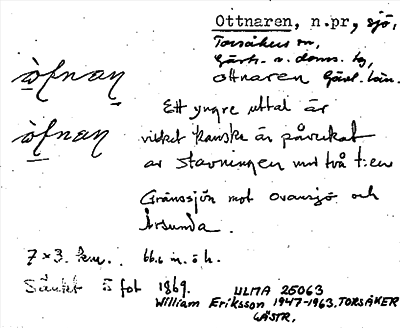 Ottnaren, n.pr, sjö,
Torsåkers sn,
Gästr. v. doms. tg,
Ottnaren Gävl. län.
òfnan
Ett yngre uttal är
òfnan vilket kanske är påverkat
av stavningen med två t:en
Gränssjön mot Ovansjö och
Årsunda.
7 × 3 km. 66.6 m. ö. h.
Sänkt 5 fot 1869. ULMA 25063
William Eriksson 1947-1963. TORSÅKER
GÄSTR.